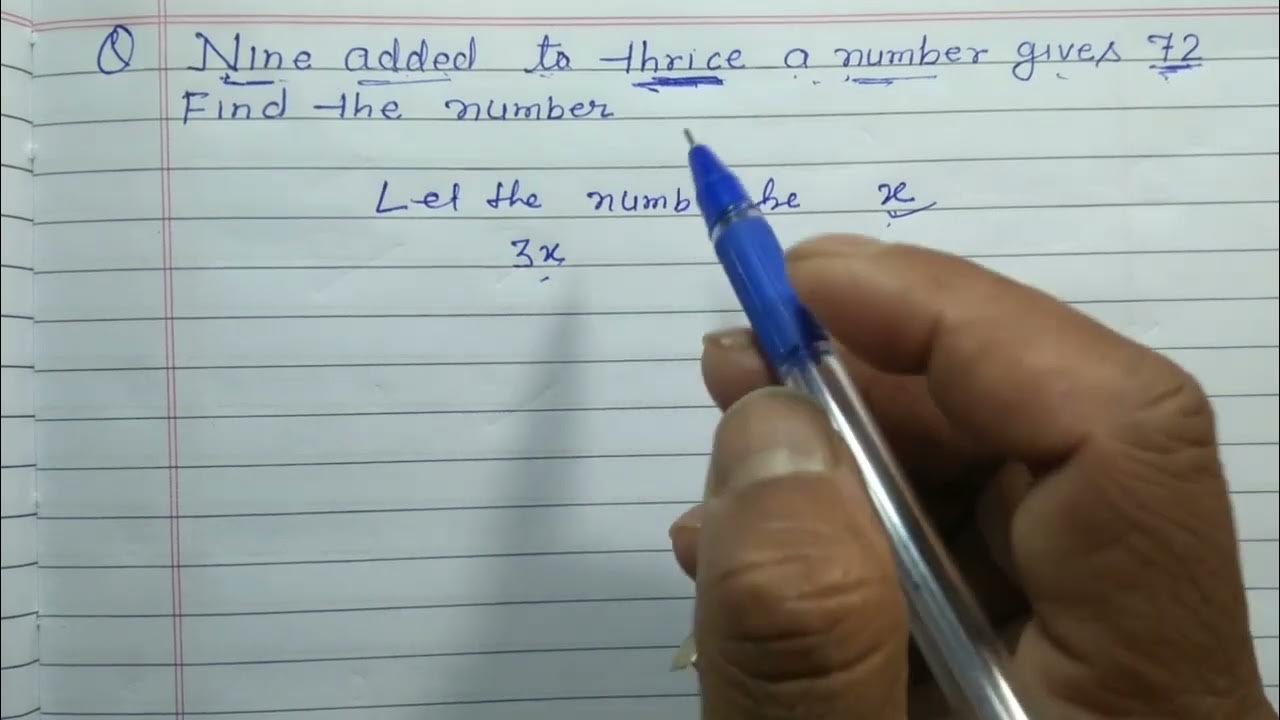 Q Nine added to thrice a number gives 72
Find the number
Let the numb be x
3x